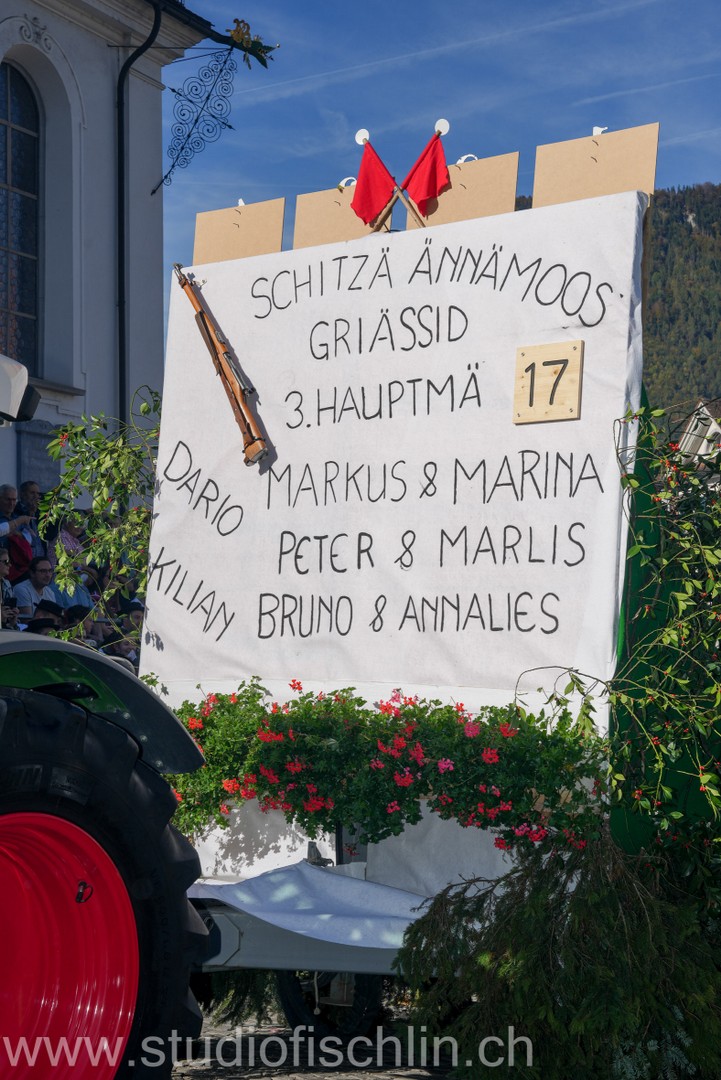 SCHITZÄ ÄNNÄMOOS
GRIÄSSID
3. HAUPTMÄ
17
MARKUS & MARINA
DARIO
PETER & MARLIS
KILIAN
BRUNO & ANNALIES
www.studiofischlin.ch